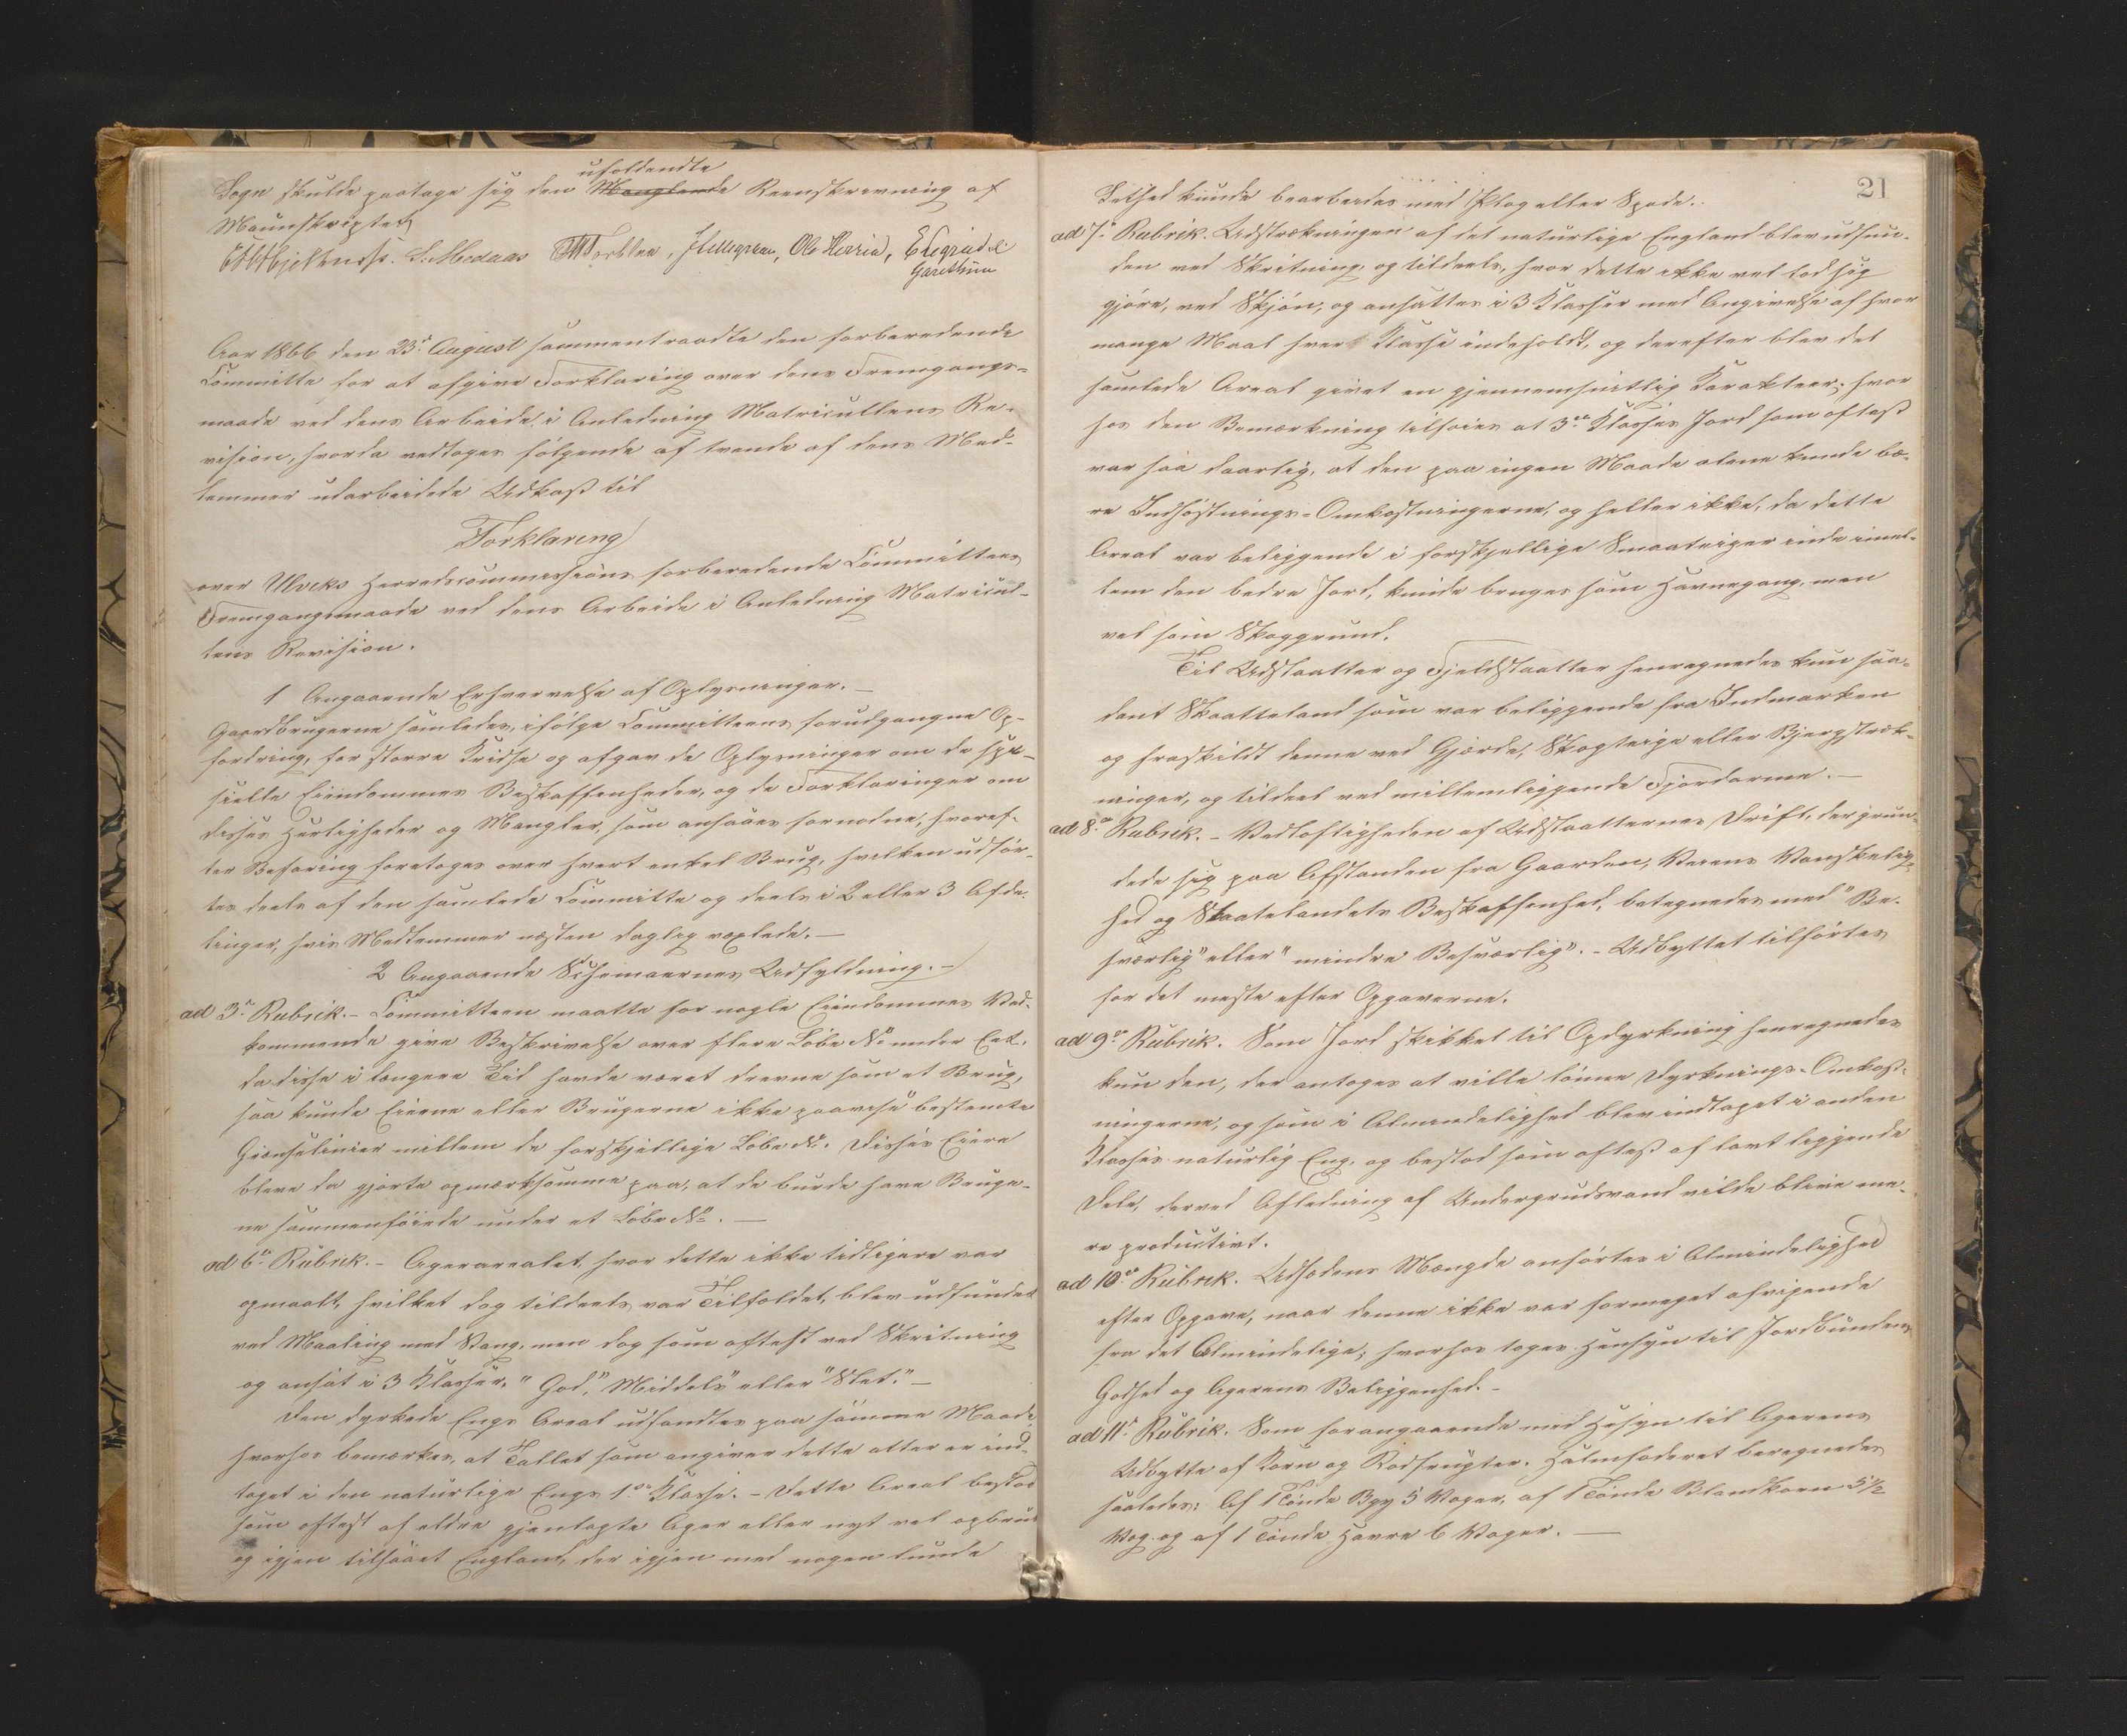 ufoldendte
Sogn skulde paatage sig den Manglende Reenskrivning af
Manuskriptet
S. Medaas Ole Herrid,
Aar 1866 den 23de August sammentraadte den forberedende
Committe for at afgive Forklaring over dens Fremgangs-
maade ved dens Arbeide i Anledning Matricullens Re-
vision, hvorda vedtoges følgende af tvende af dens Med-
lemmer udarbeidede Udkast til
Forklaring
over Ulviks Herredscommissions forberedende Committees
Fremgangsmaade ved dens Arbeide i Anledning Matricul-
lens Revision.
1 Angaaende Erhvervelse af Oplysninger. —
Gaardbrugerne samledes, ifølge Committeens forudgangne Op-
fordring, for større Kredse og afgav de Oplysninger om de spe-
cielle Eiendommes Beskaffenheder, og de Forklaringer om
disses Herligheder og Mangler, som ansaaes fornødne, hvoref-
ter Befaring foretoges over hvert enkelt Brug, hvilken udfør-
tes deels af den samlede Committe og deels i 2 eller 3 Afde-
linger, hvis Medlemmer næsten daglig vexlede. —
2 Angaaende Schemaernes Udfyldning. —
ad 3de Rubrik. – Committeen maatte for nogle Eiendommes Ved-
kommende give Beskrivelse over flere Løbe No under Eet.
da disse i længere Tid havde været drevne som et Brug,
saa kunde Eierne eller Brugerne ikke paavise bestemte
Grænselinier mellem de forskjellige Løbe No. Disses Eiere
bleve da gjorte opmærksomme paa, at de burde have Bruge-
ne sammenføiede under et Løbe No. —
ad 6te Rubrik. – Agerarealet, hvor dette ikke tidligere var
opmaalt, hvilket dog tildeels var Tilfældet, blev udfundet
ved Maaling med Stang, men dog som oftest ved Skritning
og ansat i 3 Klasser, "God", "Middels" eller "Slet." —
Den dyrkede Engs Areal udfandtes paa samme Maade
hvorhos bemærkes, at Tallet som angiver dette atter er ind-
taget i den naturlige Engs 1ste Klasse. – Dette Areal bestod
som oftest af ældre gjenlagte Ager eller nyt vel opbrudt
og igjen tilsaaet England, der igjen med nogenlunde
21
Lethed kunde bearbeides med Plog eller Spade.
ad 7de Rubrik. Udstrækningen af det naturlige England blev udfun-
den ved Skritning, og tildeels, hvor dette ikke vel lod sig
gjøre, ved Skjøn, og ansattes i 3 Klasser med Angivelse af hvor
mange Maal hver Klasse indeholdt, og derefter blev det
samlede Areal givet en gjennemsnitlig Karakteer; hvor
hos den Bemærkning tilføies at 3die Klasses Jord som oftest
var saa daarlig, at den paa ingen Maade alene kunde bæ-
re Indhøstnings-Omkostningerne, og heller ikke, da dette
Areal var beliggende i forskjellige Smaateiger inde imel-
lem den bedre Jord, kunde bruges som Havnegang, men
vel som Skoggrund.
Til Udslaatter og Fjeldslaatter henregnedes kun saa-
dant Slaatteland som var beliggende fra Indmarken
og fraskildt denne ved Gjærde, Skogteige eller Bjergstræk-
ninger, og tildeel ved mellemliggende Fjordarme. —
ad 8de Rubrik. – Vedløftigheden af Udslaatternes Drift, der grun-
dede sig paa Afstanden fra Gaarden, Veiens Vanskelig-
hed og Slaatelandets Beskaffenhed, betegnedes med "Be-
sværlig" eller "mindre Besværlig". – Udbyttet tilførtes
for det meste efter Opgaverne.
ad 9de Rubrik. Som Jord skikket til Opdyrkning henregnedes
kun den, der antoges at ville lønne Dyrknings-Omkost-
ningerne, og som i Almindelighed blev indtaget i anden
Klasses naturlig Eng, og bestod som oftest af lavt liggende
Dele, derved Afledning af Undergrudsvand vilde blive me-
re productivt.
ad 10de Rubrik. Udsædens Mængde anførtes i Almindelighed
efter Opgave, naar denne ikke var formeget afvigende
fra det Almindelige; hvorhos toges Hensyn til Jordbundens
Godhed og Agerens Beliggenhed. –
ad 11te Rubrik. Som forangaaende med Hesyn til Agerens
Udbytte af Korn og Rodfrugter. Halmfoderet beregnedes
saaledes: Af 1 Tønde Byg 5 Voger, af 1 Tønde Blandkorn 5 1/2
Vog. og af 1 Tønde Havre 6 Voger. —